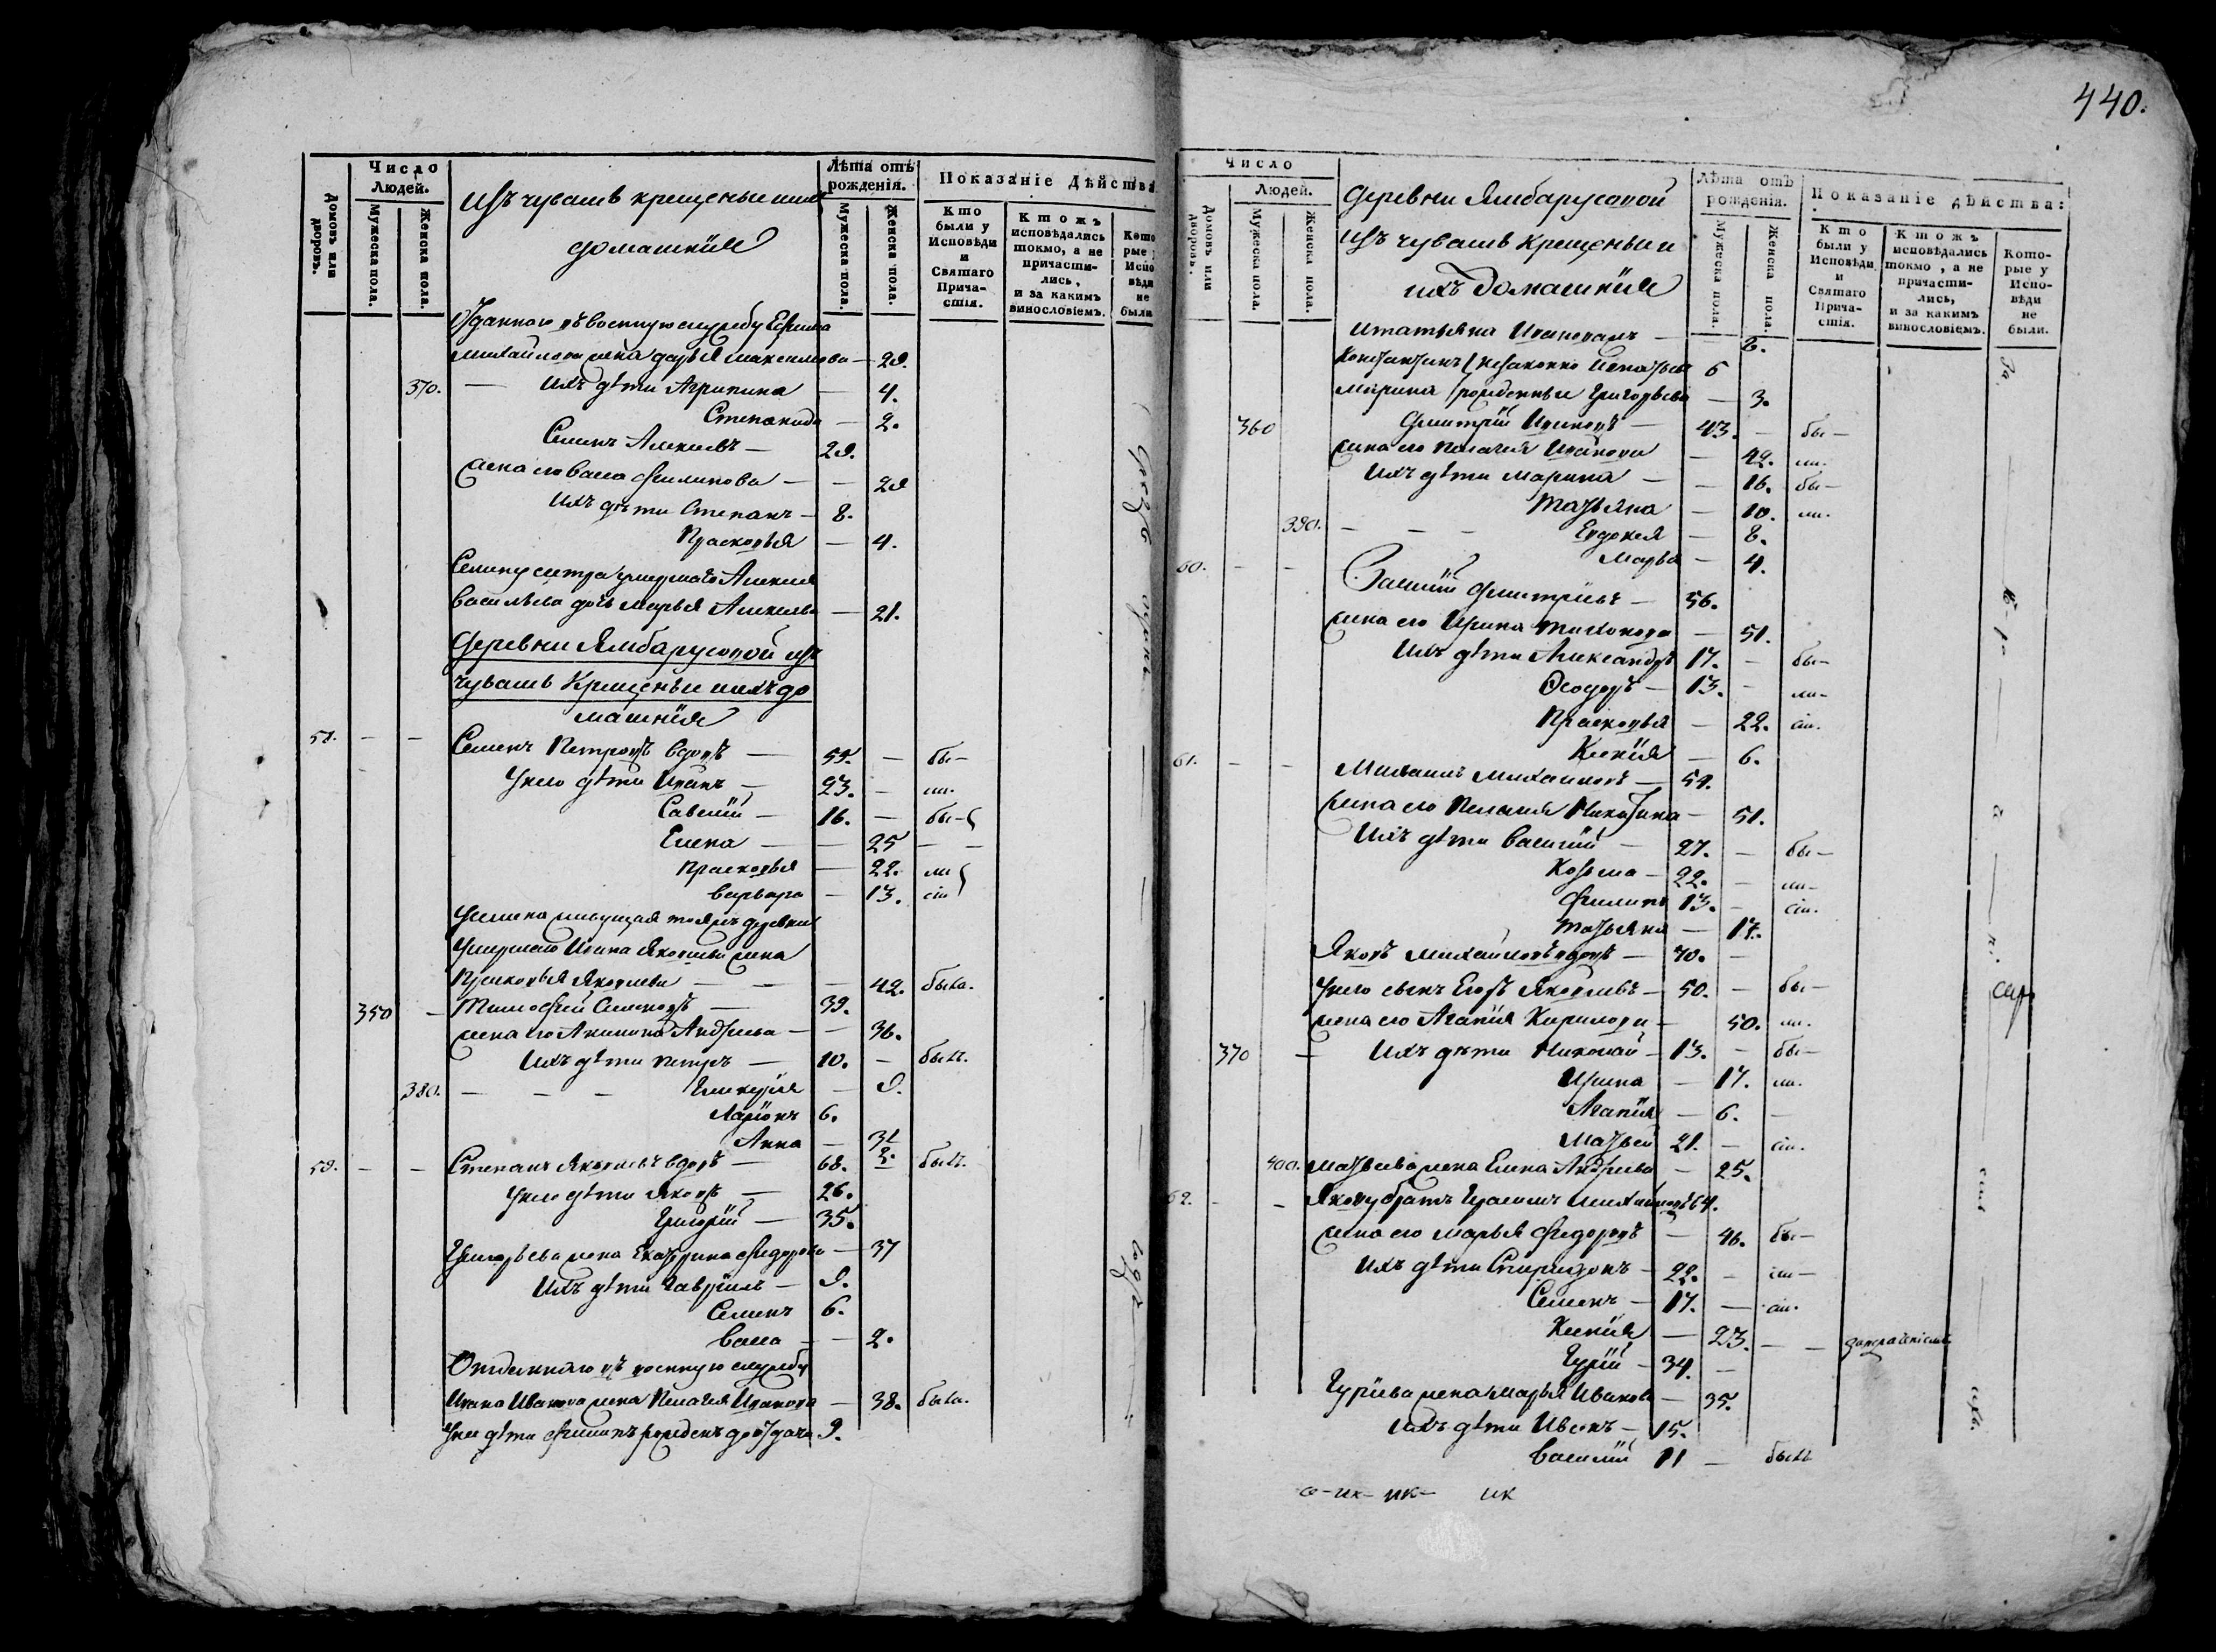 Число
Людей.
Домовъ или дворовъ.
Мужеска пола.
Женска пола.
изъ чувашъ крещеные и ихъ
домашнiя
Лѣта отъ
рожденiя.
Мужеска пола.
Женска пола.
Показанiе дѣйства
Кто
были у
Исповѣди
и
Святаго
Прича-
стiя.
Ктожъ
исповѣдались
токмо, а не
причасти-
лись,
и за какимъ
винословiемъ.
Кото
рые у
Испо
вѣди
не
были
Отданнаго въ военную службу Ефима
Михайлова жена Дарья Максимова — 29.
370. — ихъ дѣти Агрипина — 4.
Степанида — 2.
Семенъ Алексѣевъ — 29.
жена его Васса Филипова — — 29
ихъ дѣти Степанъ — 8.
Прасковья — 4.
Семену сестра умершаго Алексея
Васильева дочь Марья Алексеева — 21.
Деревни Ямбарусовой изъ
чувашъ Крещеные и ихъ до
машнiя
58. — — Семенъ Петровъ вдовъ — 55. — бы—
у него дѣти Иванъ — 23. — ли.
Савелiй — 16. — бы—
Елена — — 25 — —
Прасковья — 22. ли
Варвара — 13. сiи
у Семена живущая тояжъ деревни
умершаго Ивана Яковлева жена
Прасковья Яковлева — — — 42. была.
350 — Тимофей Семеновъ — 39.
жена его Акилина Андреева — — 36.
ихъ дѣти Петръ — 10. — былъ.
380. — — — Гликерiя — 9.
Ларiонъ 6.
Анна — 3½
59. — — Степанъ Яковлевъ вдовъ — 68. былъ.
у него дѣти Яковъ — 26.
Григорiй — 35.
Григорьева жена Екатерина Федорова — 37
ихъ дѣти Гаврiилъ — 9.
Семенъ 6.
Васса — — 2.
Отданнаго въ военную службу
Ивана Иванова жена Пелагея Иванова — 38. была.
у нее дѣти Филипъ рожденъ до отдачи 9.
440.
Число
Людей.
Домовъ или дворовъ.
Мужеска пола.
Женска пола.
Деревни Ямбарусовой
изъ чувашъ крещеные и
ихъ домашнiя
Лѣта отъ
рожденiя.
Мужеска пола.
Женска пола.
Показанiе дѣйства:
Кто
были у
Исповѣди
и
Святаго
Прича-
стiя.
Ктожъ
исповѣдались
токмо, а не
причасти-
лись,
и за какимъ
винословiемъ.
Кото-
рые у
Испо-
вѣди
не
были.
и Татьяна Иванова — 8.
Константинъ (незаконно Игнатьевъ 5
Марина (рожденные Григорьева — 3.
360 Дмитрiй Ивановъ — 43. — бы—
жена его Пелагея Иванова — 42. ли.
ихъ дѣти Марина — — 16. бы—
Татьяна — 10. ли.
390. — — — Евдокея — 8.
Марья — 4.
60. — — Василiй Дмитрiевъ — 56.
жена его Ирина Тихонова — 51.
ихъ дѣти Александръ 17. — бы—
Ѳеодоръ — 13. — ли—
Прасковья — 22. сiи.
Ксенiя — 6.
61. — — Михаилъ Михайловъ — 59.
жена его Пелагея Никитина — 51.
ихъ дѣти Василiй — 27. — бы—
Козьма — 22. — ли—
Филипъ 13. — сiи.
Татьяна — 17.
Яковъ Михайловъ вдовъ — 70. —
у него сынъ Егоръ Яковлевъ — 50. — бы—
жена его Агапiя Кирилова — 50. ли.
370 — ихъ дѣти Николай — 13. — бы—
Ирина — 17. ли.
Агапiя — 6. —
Матвей 21. — сiи.
400. Матвеева жена Елена Андреева — 25.
62. — — Якову братъ Герасимъ Михайловъ 64.
жена его Марья Федорова — 46. бы—
ихъ дѣти Спиридонъ — 22. — ли—
Семенъ — 17. — сiи.
Ксенiя — 23. — —
Гурiй — 34. —
Гурiева жена Марья Иванова — 35.
ихъ дѣти Иванъ — 15.
Василiй 11 — былъ